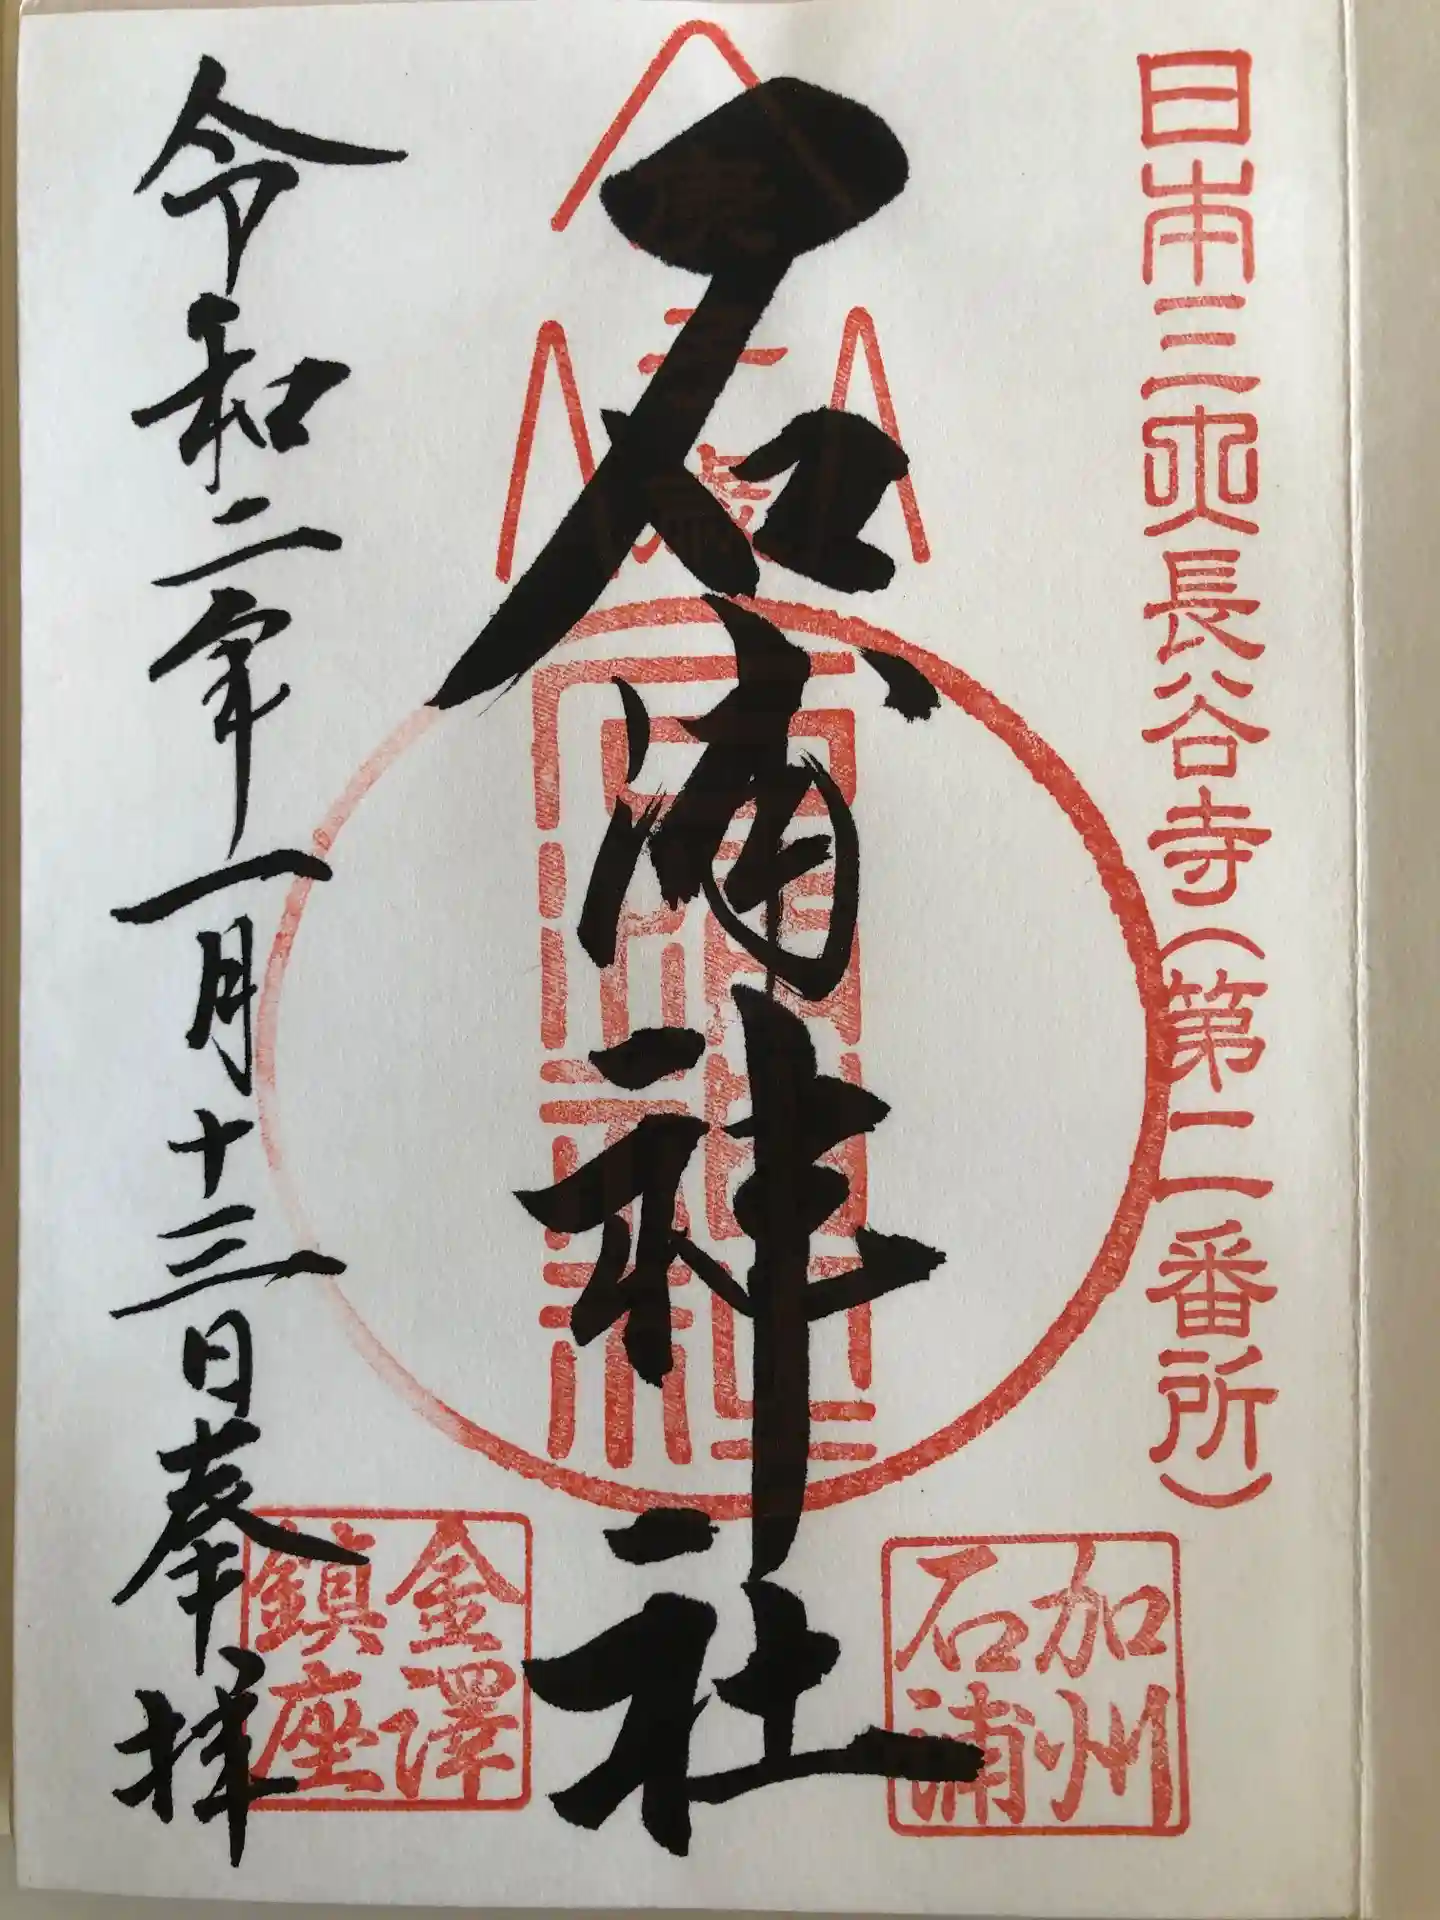 日本三大長谷寺(第二番所)
石浦神社
庚子歳
加州
石浦
金澤
鎮座
令和二年一月十三日奉拝